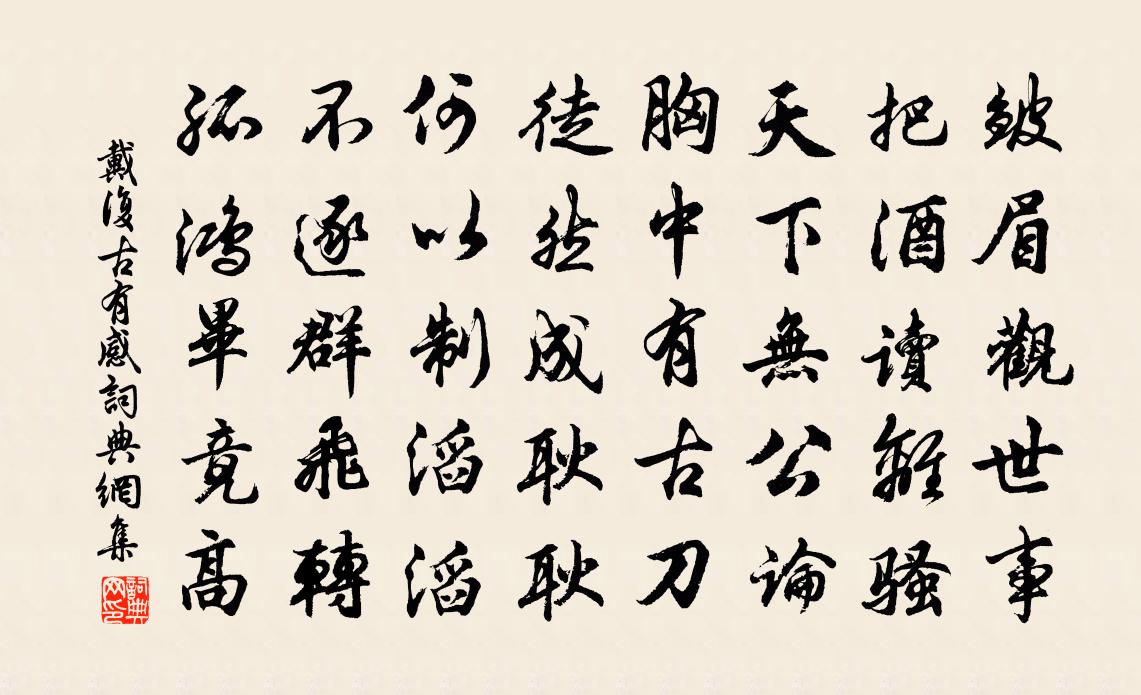 皴眉觀世事
把酒讀離騷
天下無公論
胸中有古刀
徒然成耿耿
何以制滔滔
不逐群飛轉
孤鴻畢竟高
戴復古有感詞典網集
詞典網印